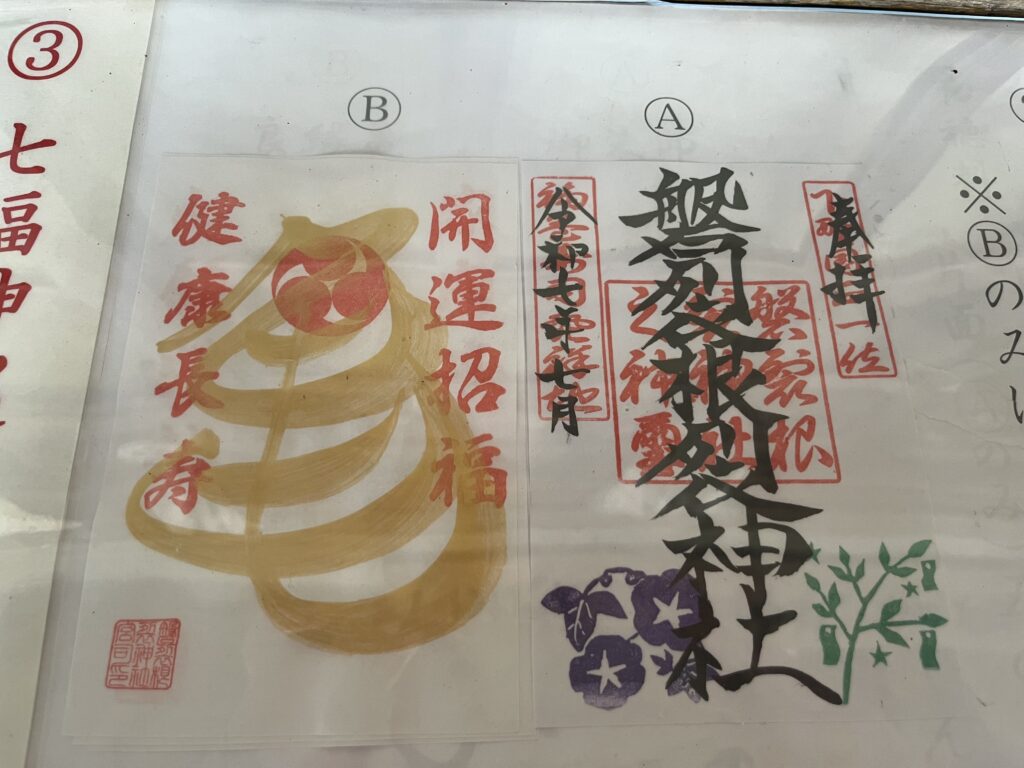 ※Ⓑのみ
Ⓐ
奉拝
磐裂根裂神社
磐裂根
裂神社
令和七年七月
Ⓑ
開運招福
健康長寿
③ 七福神